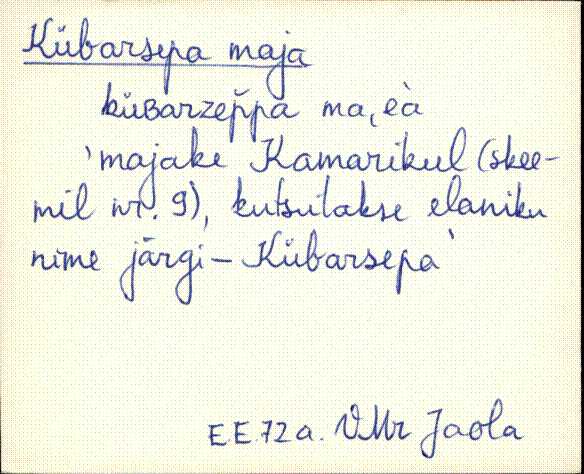 Kübarsepa maja
küʙarzep̆pa ma͔eà
'majake Kamarikul (skee-
mil nr. 9), kutsutakse elaniku
nime järgi – Kübarsepa'
EE.72a. VMr Jaola